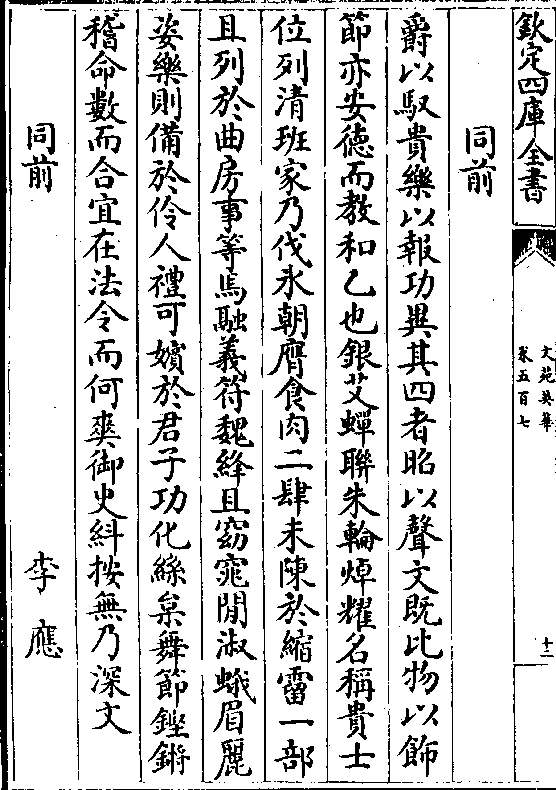 欽定四庫全書
文苑英華
卷五百七
十二
同前
爵以馭貴樂以報功異其四者昭以聲文既比物以飾
節亦安德而教和乙也銀艾蟬聯朱輪焯耀名稱貴士
位列清班家乃伐氷朝膺食肉二肆未陳於縮霤一部
且列於曲房事等馬融義符魏絳且窈窕閒淑蛾眉麗
姿樂則備於伶人禮可嬪於君子功化絲枲舞節鏗鏘
稽命數而合宜在法令而何爽御史糾按無乃深文
同前
李應